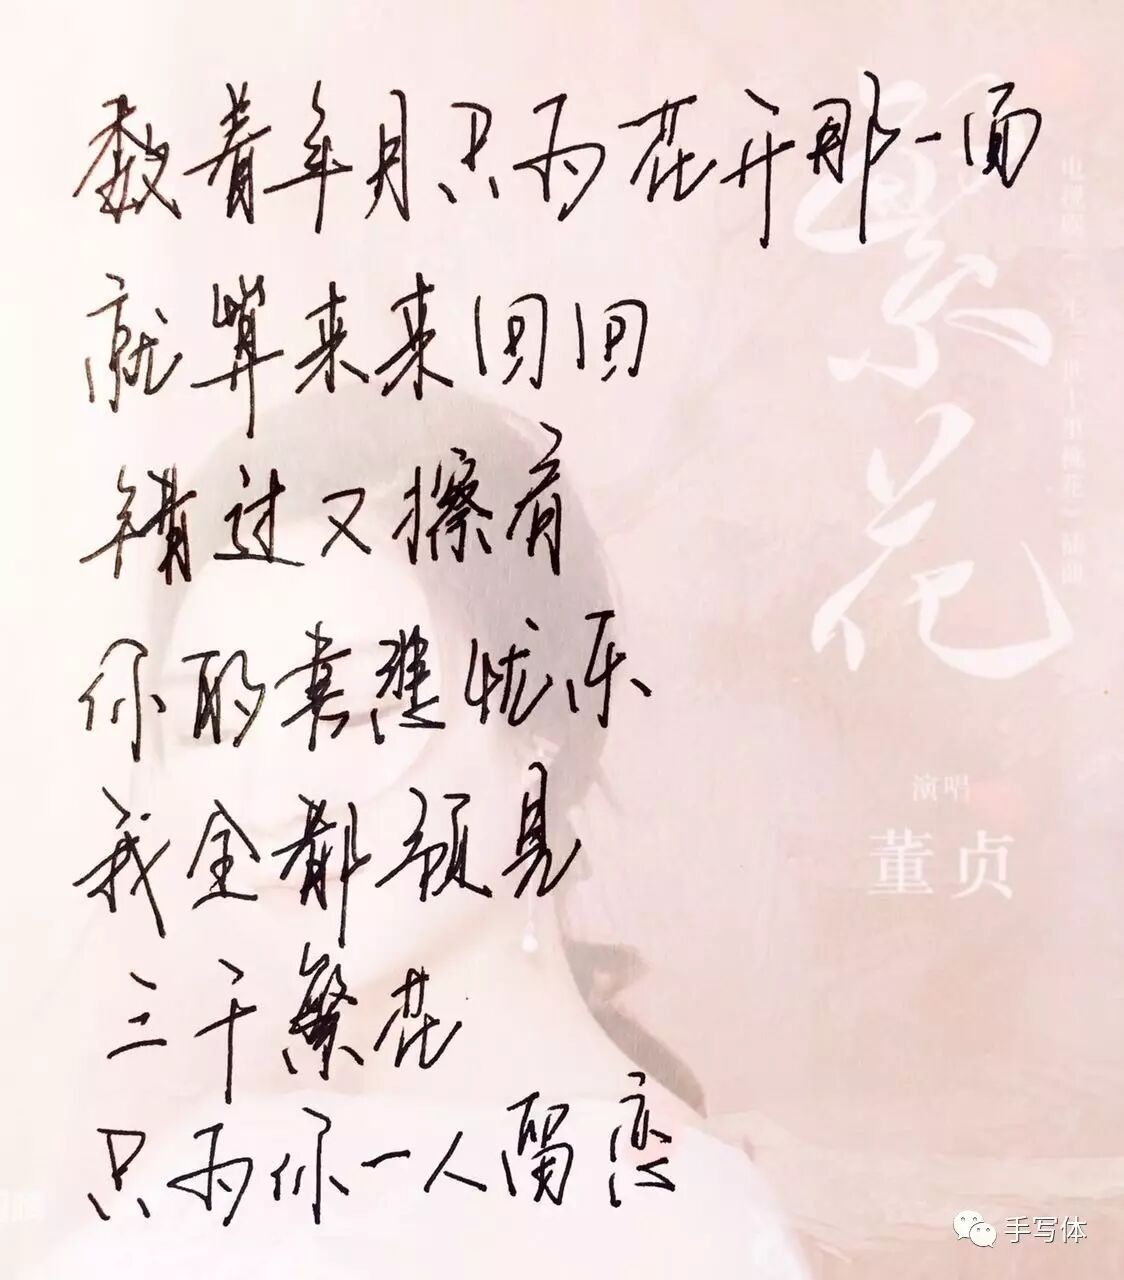 数着年月只为花开那一面
就算来来回回
错过又擦肩
你的喜怒忧乐
我全都预见
三千繁花
只为你一人留恋
繁花
电视剧《三生三世十里桃花》插曲
演唱
董贞
手写体